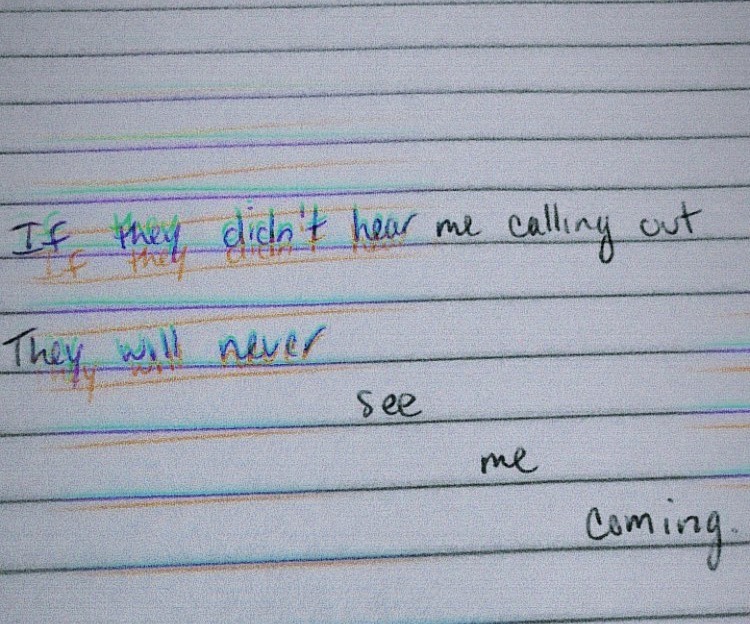 If they didn't hear me calling out
They will never
see
me
coming.